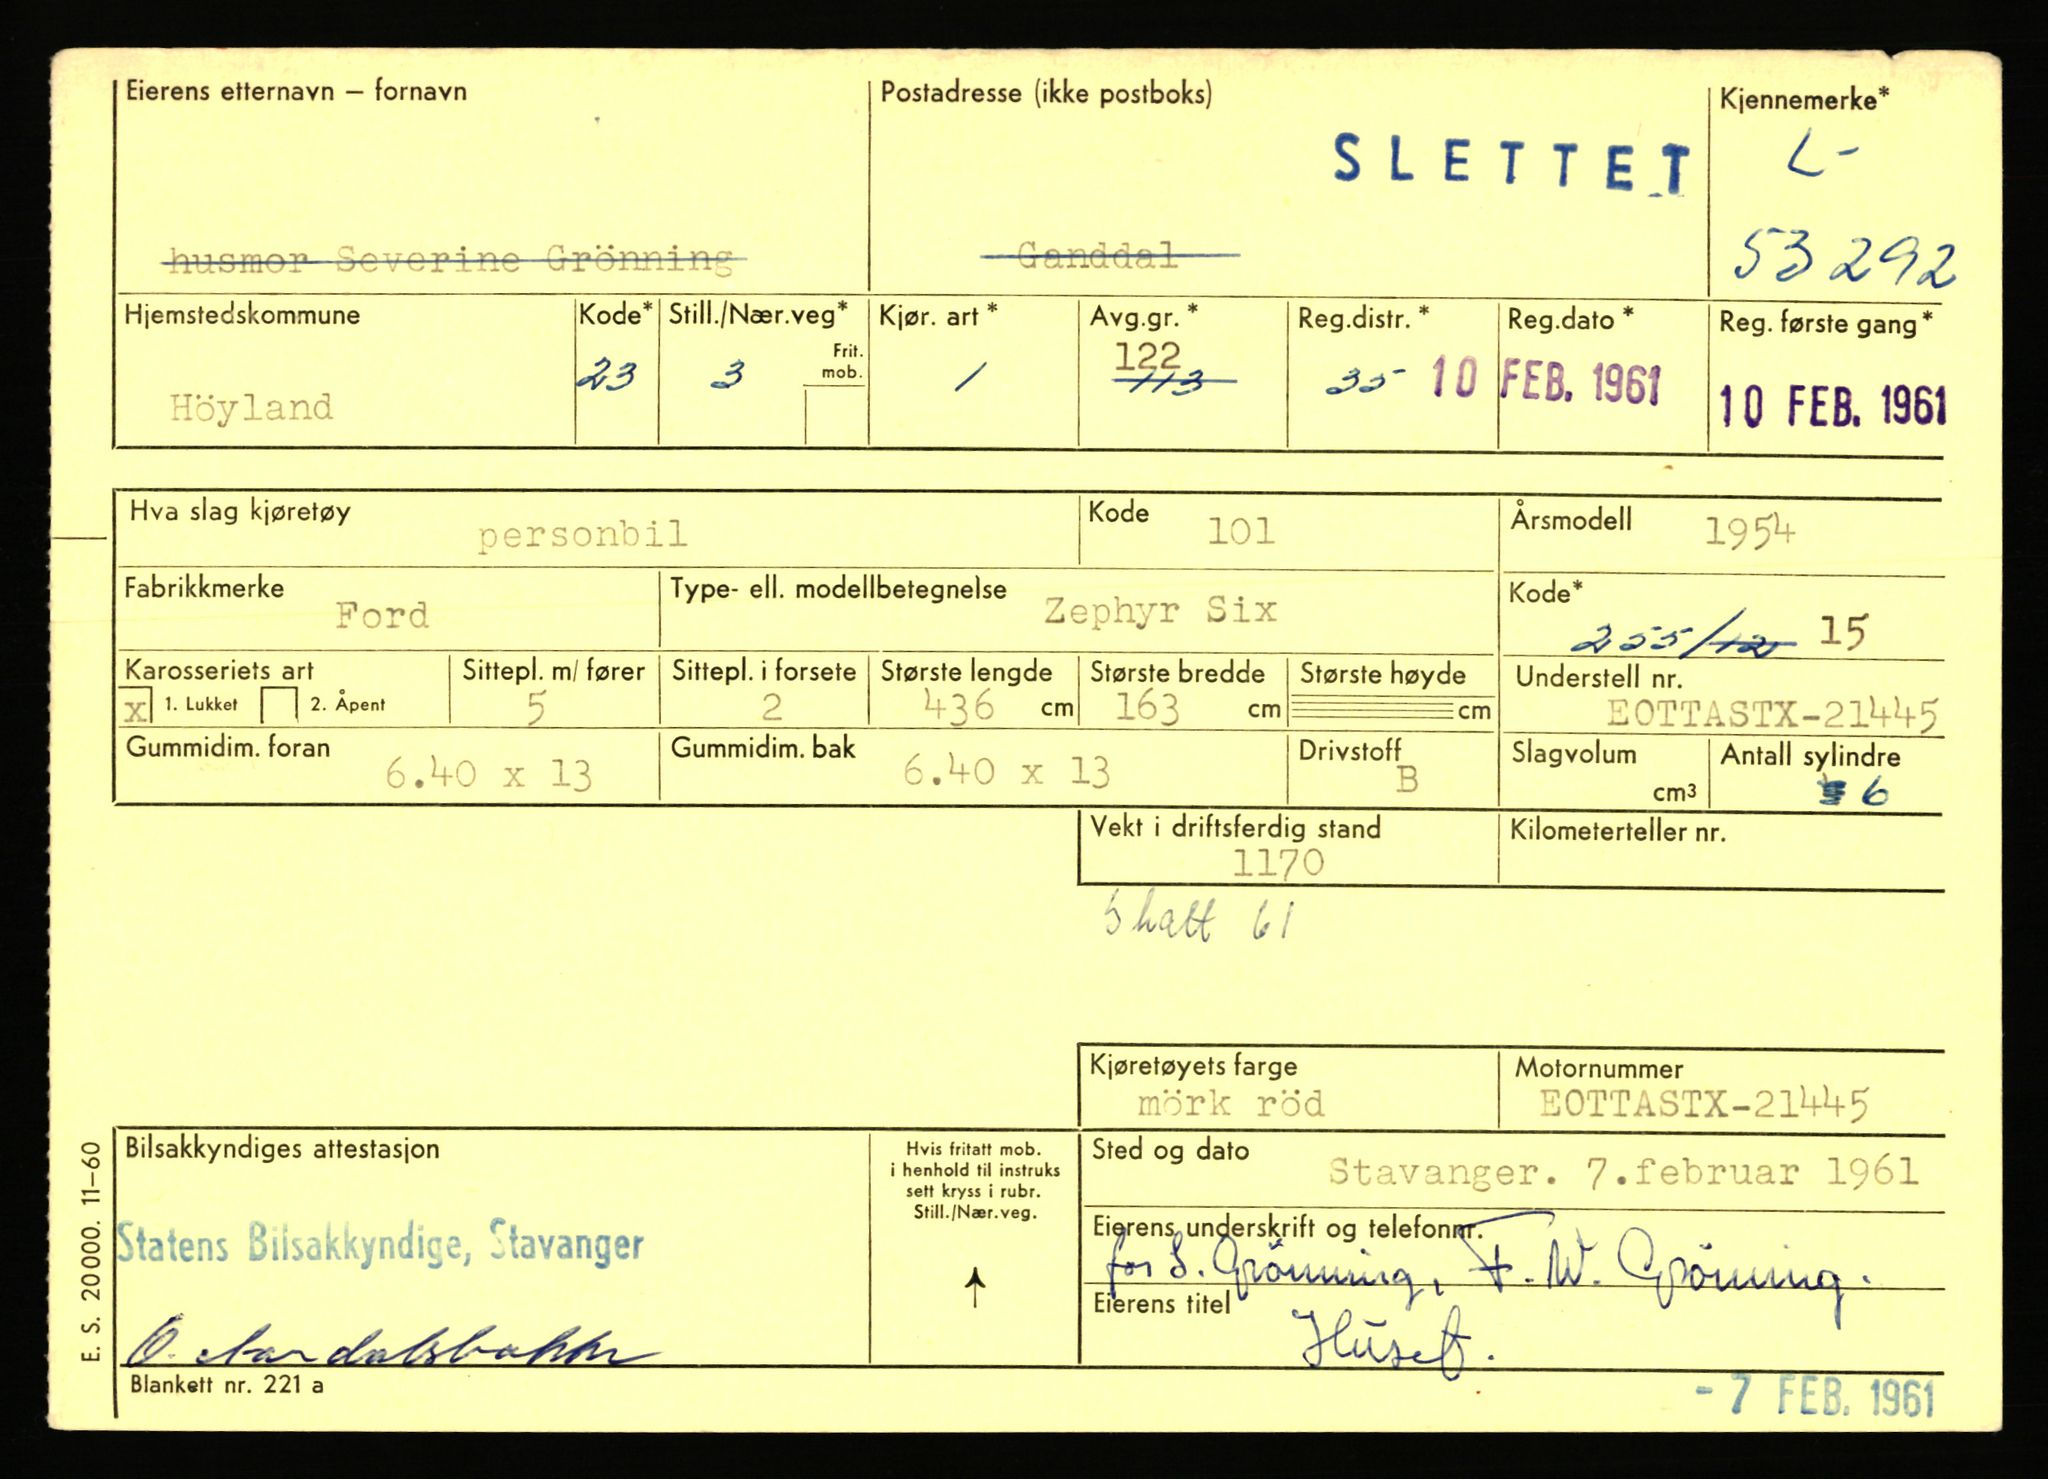 Eierens etternavn – fornavn
Postadresse (ikke postboks)
Kjennemerke*
SLETTET
L-
husmor Severine Grönning
Ganddal
53292
Hjemstedskommune
Kode*
Still./Nær.veg*
Kjør. art*
Avg.gr.*
Reg.distr.*
Reg.dato*
Reg. første gang*
Frit. mob.
122
Höyland
23
3
1
113
35
10 FEB. 1961
10 FEB. 1961
Hva slag kjøretøy
personbil
Kode
101
Årsmodell
1954
Fabrikkmerke
Ford
Type- ell. modellbetegnelse
Zephyr Six
Kode*
255/12 15
Karosseriets art
x 1. Lukket
2. Åpent
Sittepl. m/ fører
5
Sittepl. i forsete
2
Største lengde
436 cm
Største bredde
163 cm
Største høyde
cm
Understell nr.
EOTTASTX-21445
Gummidim. foran
6.40 x 13
Gummidim. bak
6.40 x 13
Drivstoff
B
Slagvolum
cm³
Antall sylindre
6
Vekt i driftsferdig stand
1170
Kilometerteller nr.
Skatt 61
Kjøretøyets farge
mörk röd
Motornummer
EOTTASTX-21445
Bilsakkyndiges attestasjon
Statens Bilsakkyndige, Stavanger
Hvis fritatt mob.
i henhold til instruks
sett kryss i rubr.
Still./Nær.veg.
Sted og dato
Stavanger. 7.februar 1961
Eierens underskrift og telefonnr.
for S. Grönning, F. W. Grönning.
Eierens titel
E. S. 20000. 11-60
Blankett nr. 221 a
- 7 FEB. 1961